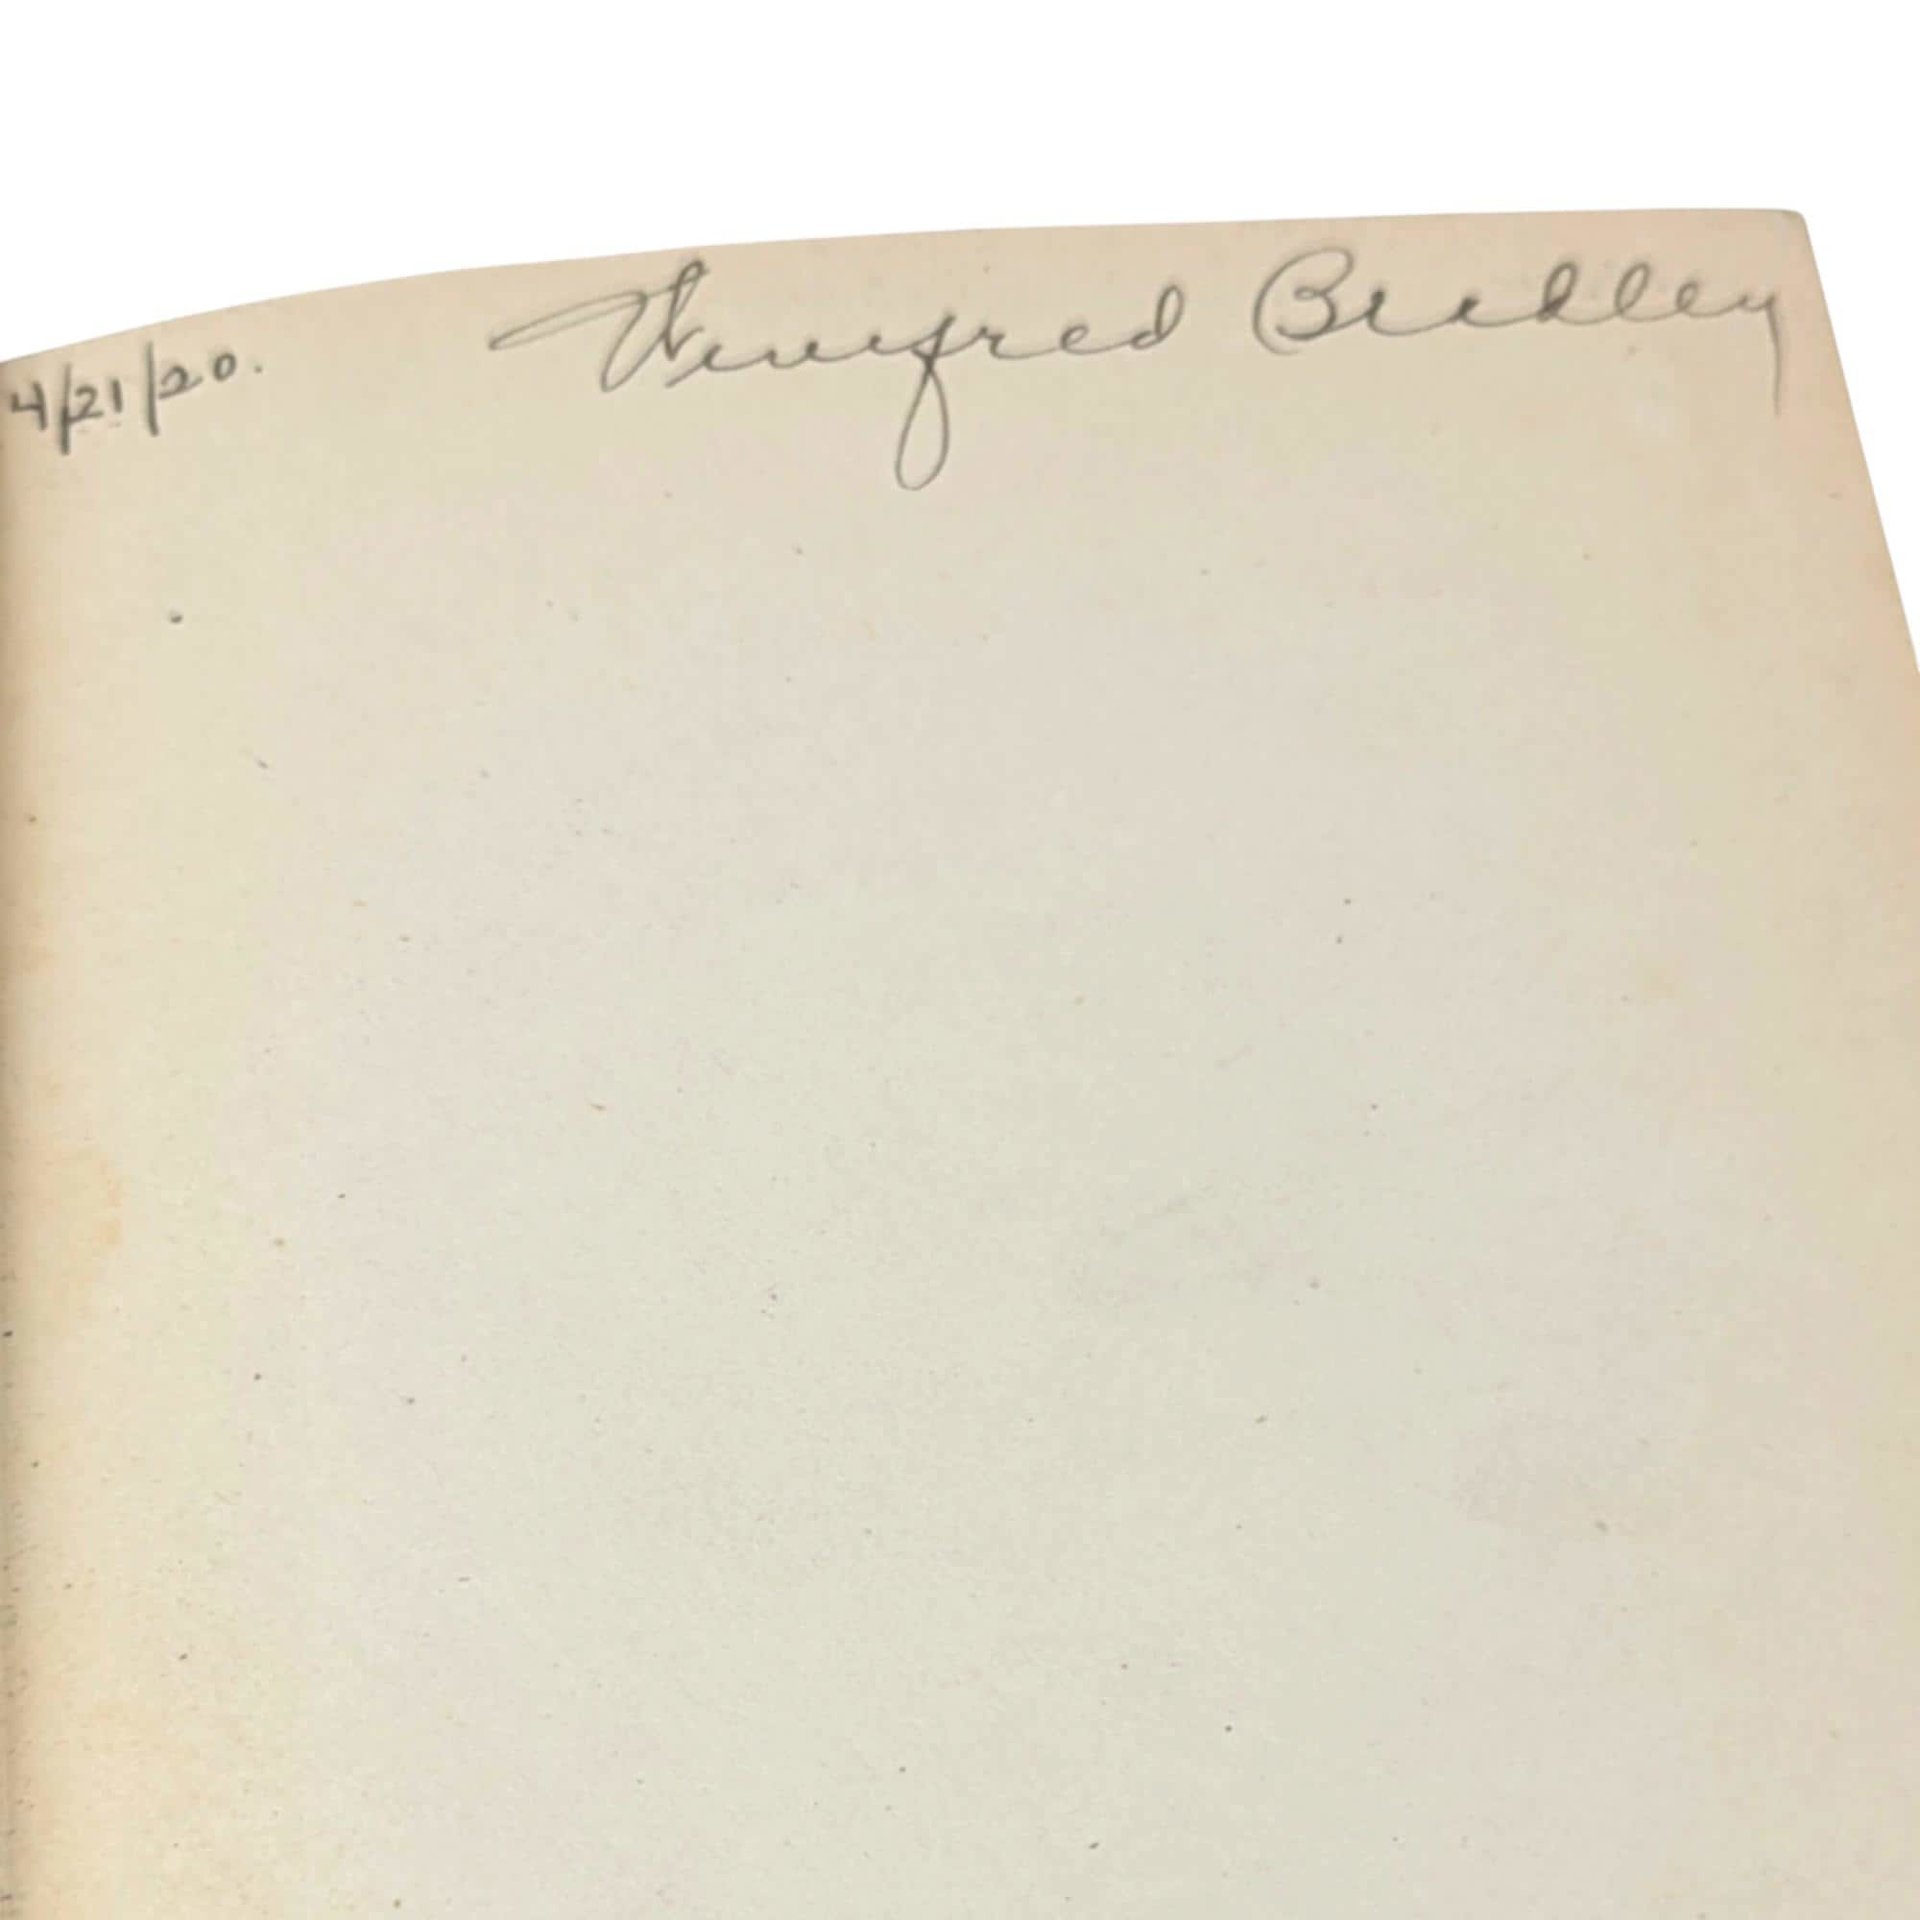 4/21/20. Winifred